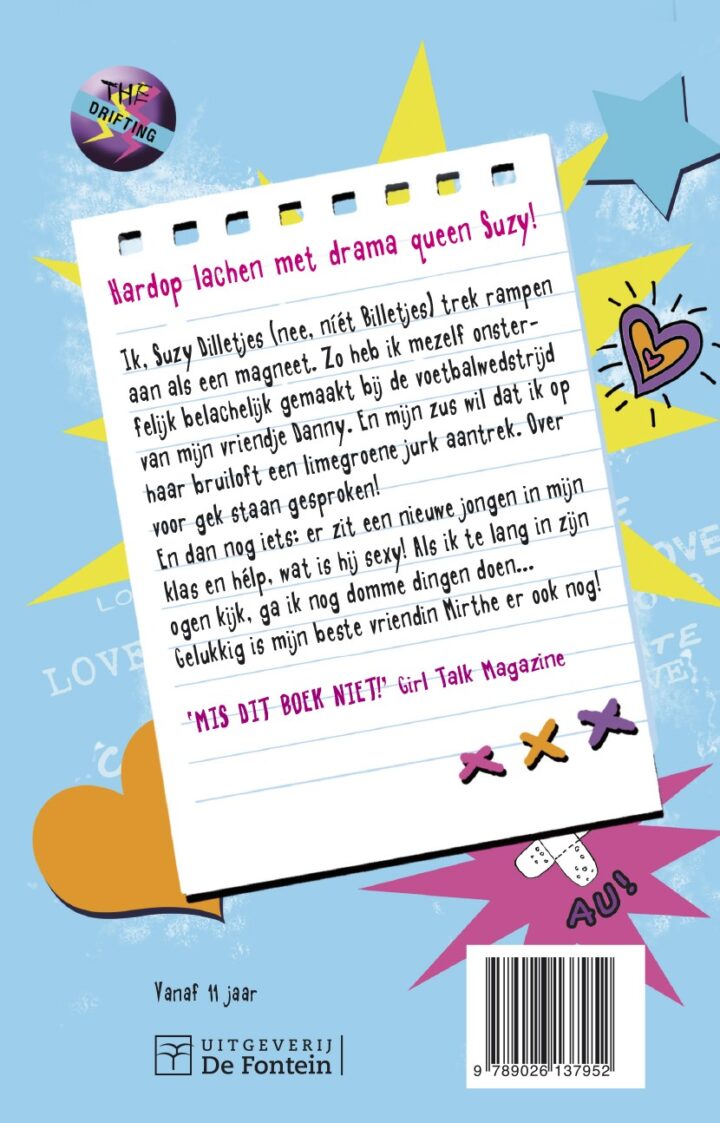 THE
DRIFTING
Hardop lachen met drama queen Suzy!
Ik, Suzy Dilletjes (nee, níét Billetjes) trek rampen
aan als een magneet. Zo heb ik mezelf onster-
felijk belachelijk gemaakt bij de voetbalwedstrijd
van mijn vriendje Danny. En mijn zus wil dat ik op
haar bruiloft een limegroene jurk aantrek. Over
voor gek staan gesproken!
En dan nog iets: er zit een nieuwe jongen in mijn
klas en hélp, wat is hij sexy! Als ik te lang in zijn
ogen kijk, ga ik nog domme dingen doen...
Gelukkig is mijn beste vriendin Mirthe er ook nog!
'MIS DIT BOEK NIET!' Girl Talk Magazine
LOVE
AU!
Vanaf 11 jaar
UITGEVERIJ
De Fontein
9 789026 137952